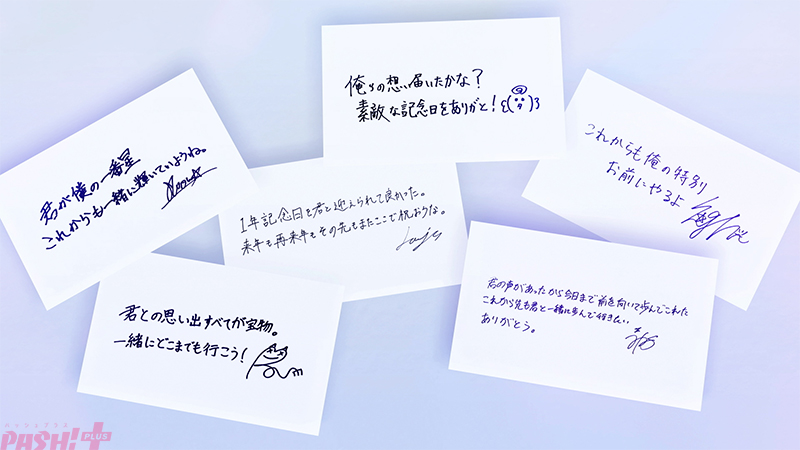 俺らの想い届いたかな？
素敵な記念日をありがと！
君が僕の一番星
これからも一緒に輝いていようね。
これからも俺の特別
お前にやるよ
1年記念日を君と迎えられて良かった。
来年も再来年もその先もまたここで祝おうな。
君との思い出すべてが宝物。
一緒にどこまでも行こう！
君の声があったから今日まで前を向いて歩んでこれた
これから先も君と一緒に歩んで行きたい
ありがとう。
パッシュプラス
PASH! PLUS